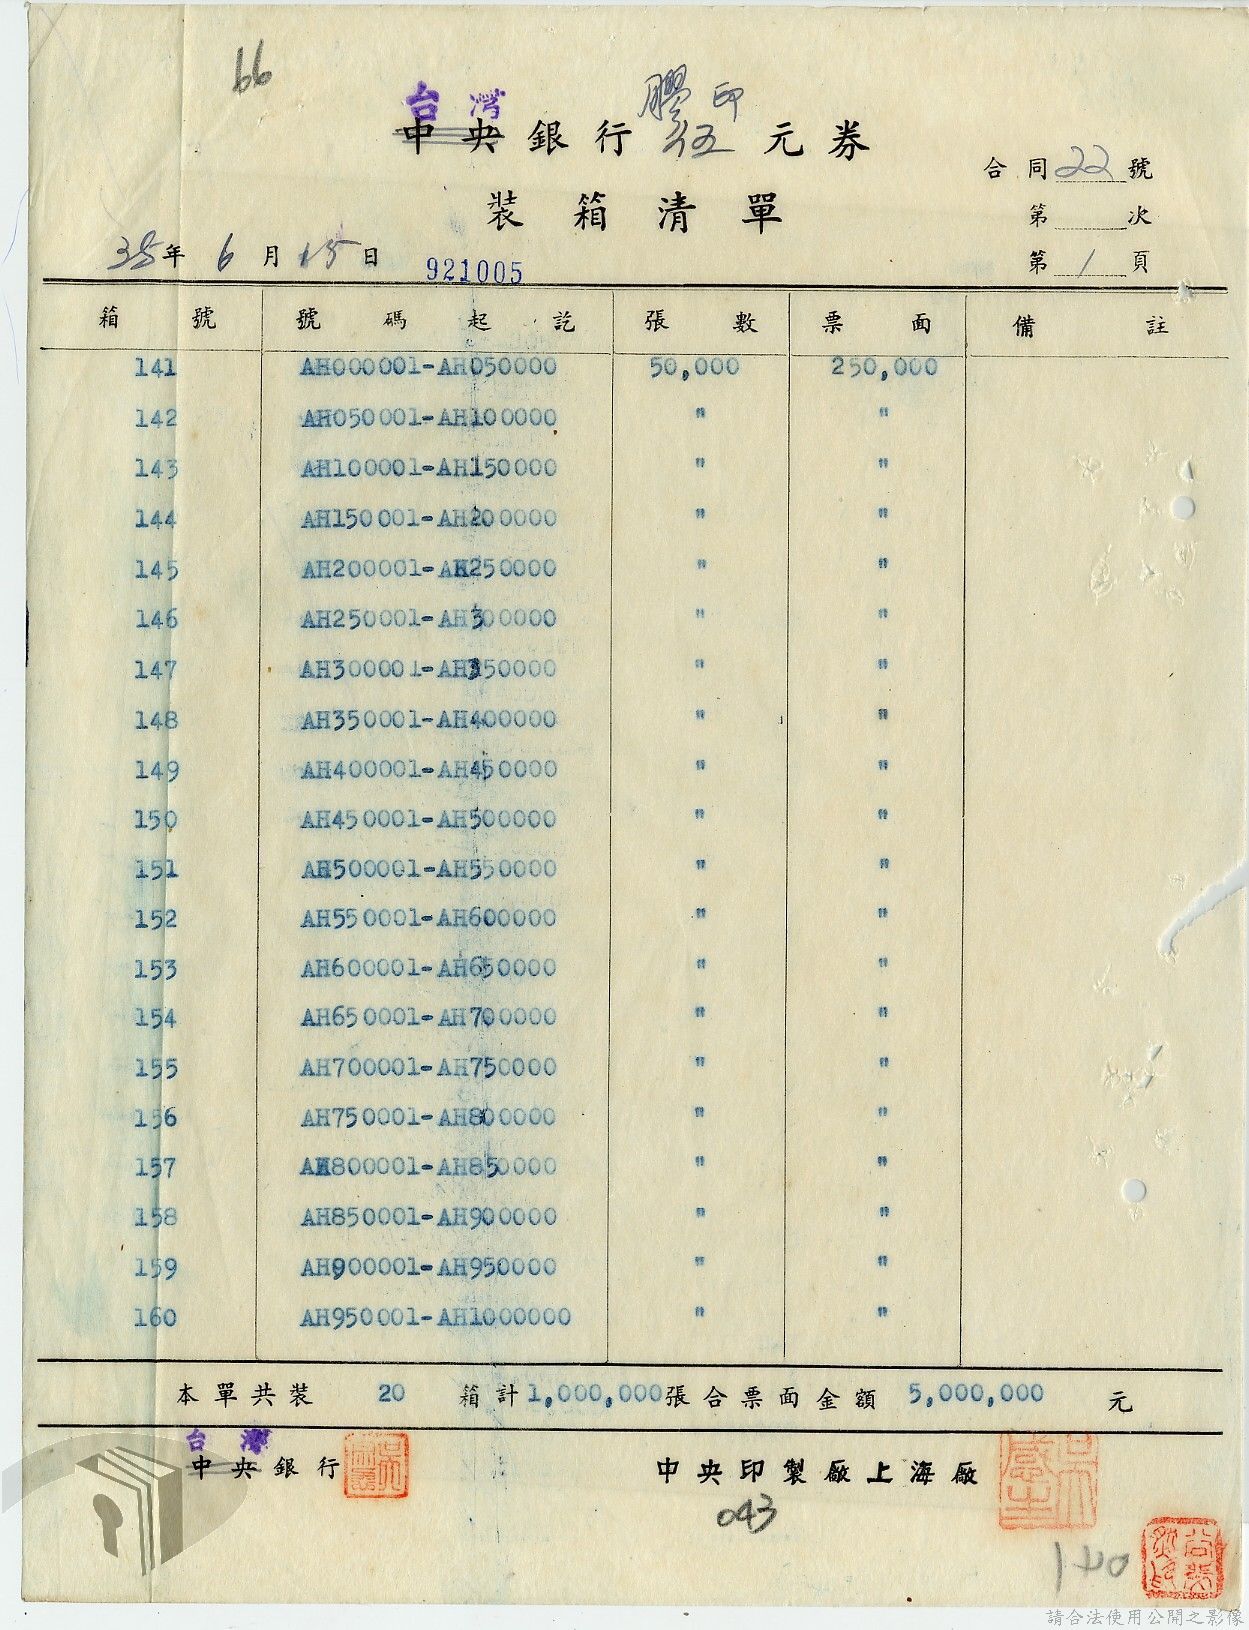 66
台灣 膠印
中央銀行伍元券
合同22號
裝箱清單
第 次
35年6月15日
第1頁
921005
箱號 號碼起訖 張數 票面 備註
141 AH000001-AH050000 50,000 250,000
142 AH050001-AH100000 " "
143 AH100001-AH150000 " "
144 AH150001-AH200000 " "
145 AH200001-AH250000 " "
146 AH250001-AH300000 " "
147 AH300001-AH350000 " "
148 AH350001-AH400000 " "
149 AH400001-AH450000 " "
150 AH450001-AH500000 " "
151 AH500001-AH550000 " "
152 AH550001-AH600000 " "
153 AH600001-AH650000 " "
154 AH650001-AH700000 " "
155 AH700001-AH750000 " "
156 AH750001-AH800000 " "
157 AH800001-AH850000 " "
158 AH850001-AH900000 " "
159 AH900001-AH950000 " "
160 AH950001-AH1000000 " "
本單共裝 20 箱計1,000,000張合票面金額 5,000,000 元
台灣
中央銀行 中央印製廠上海廠
043
140
請合法使用公開之影像